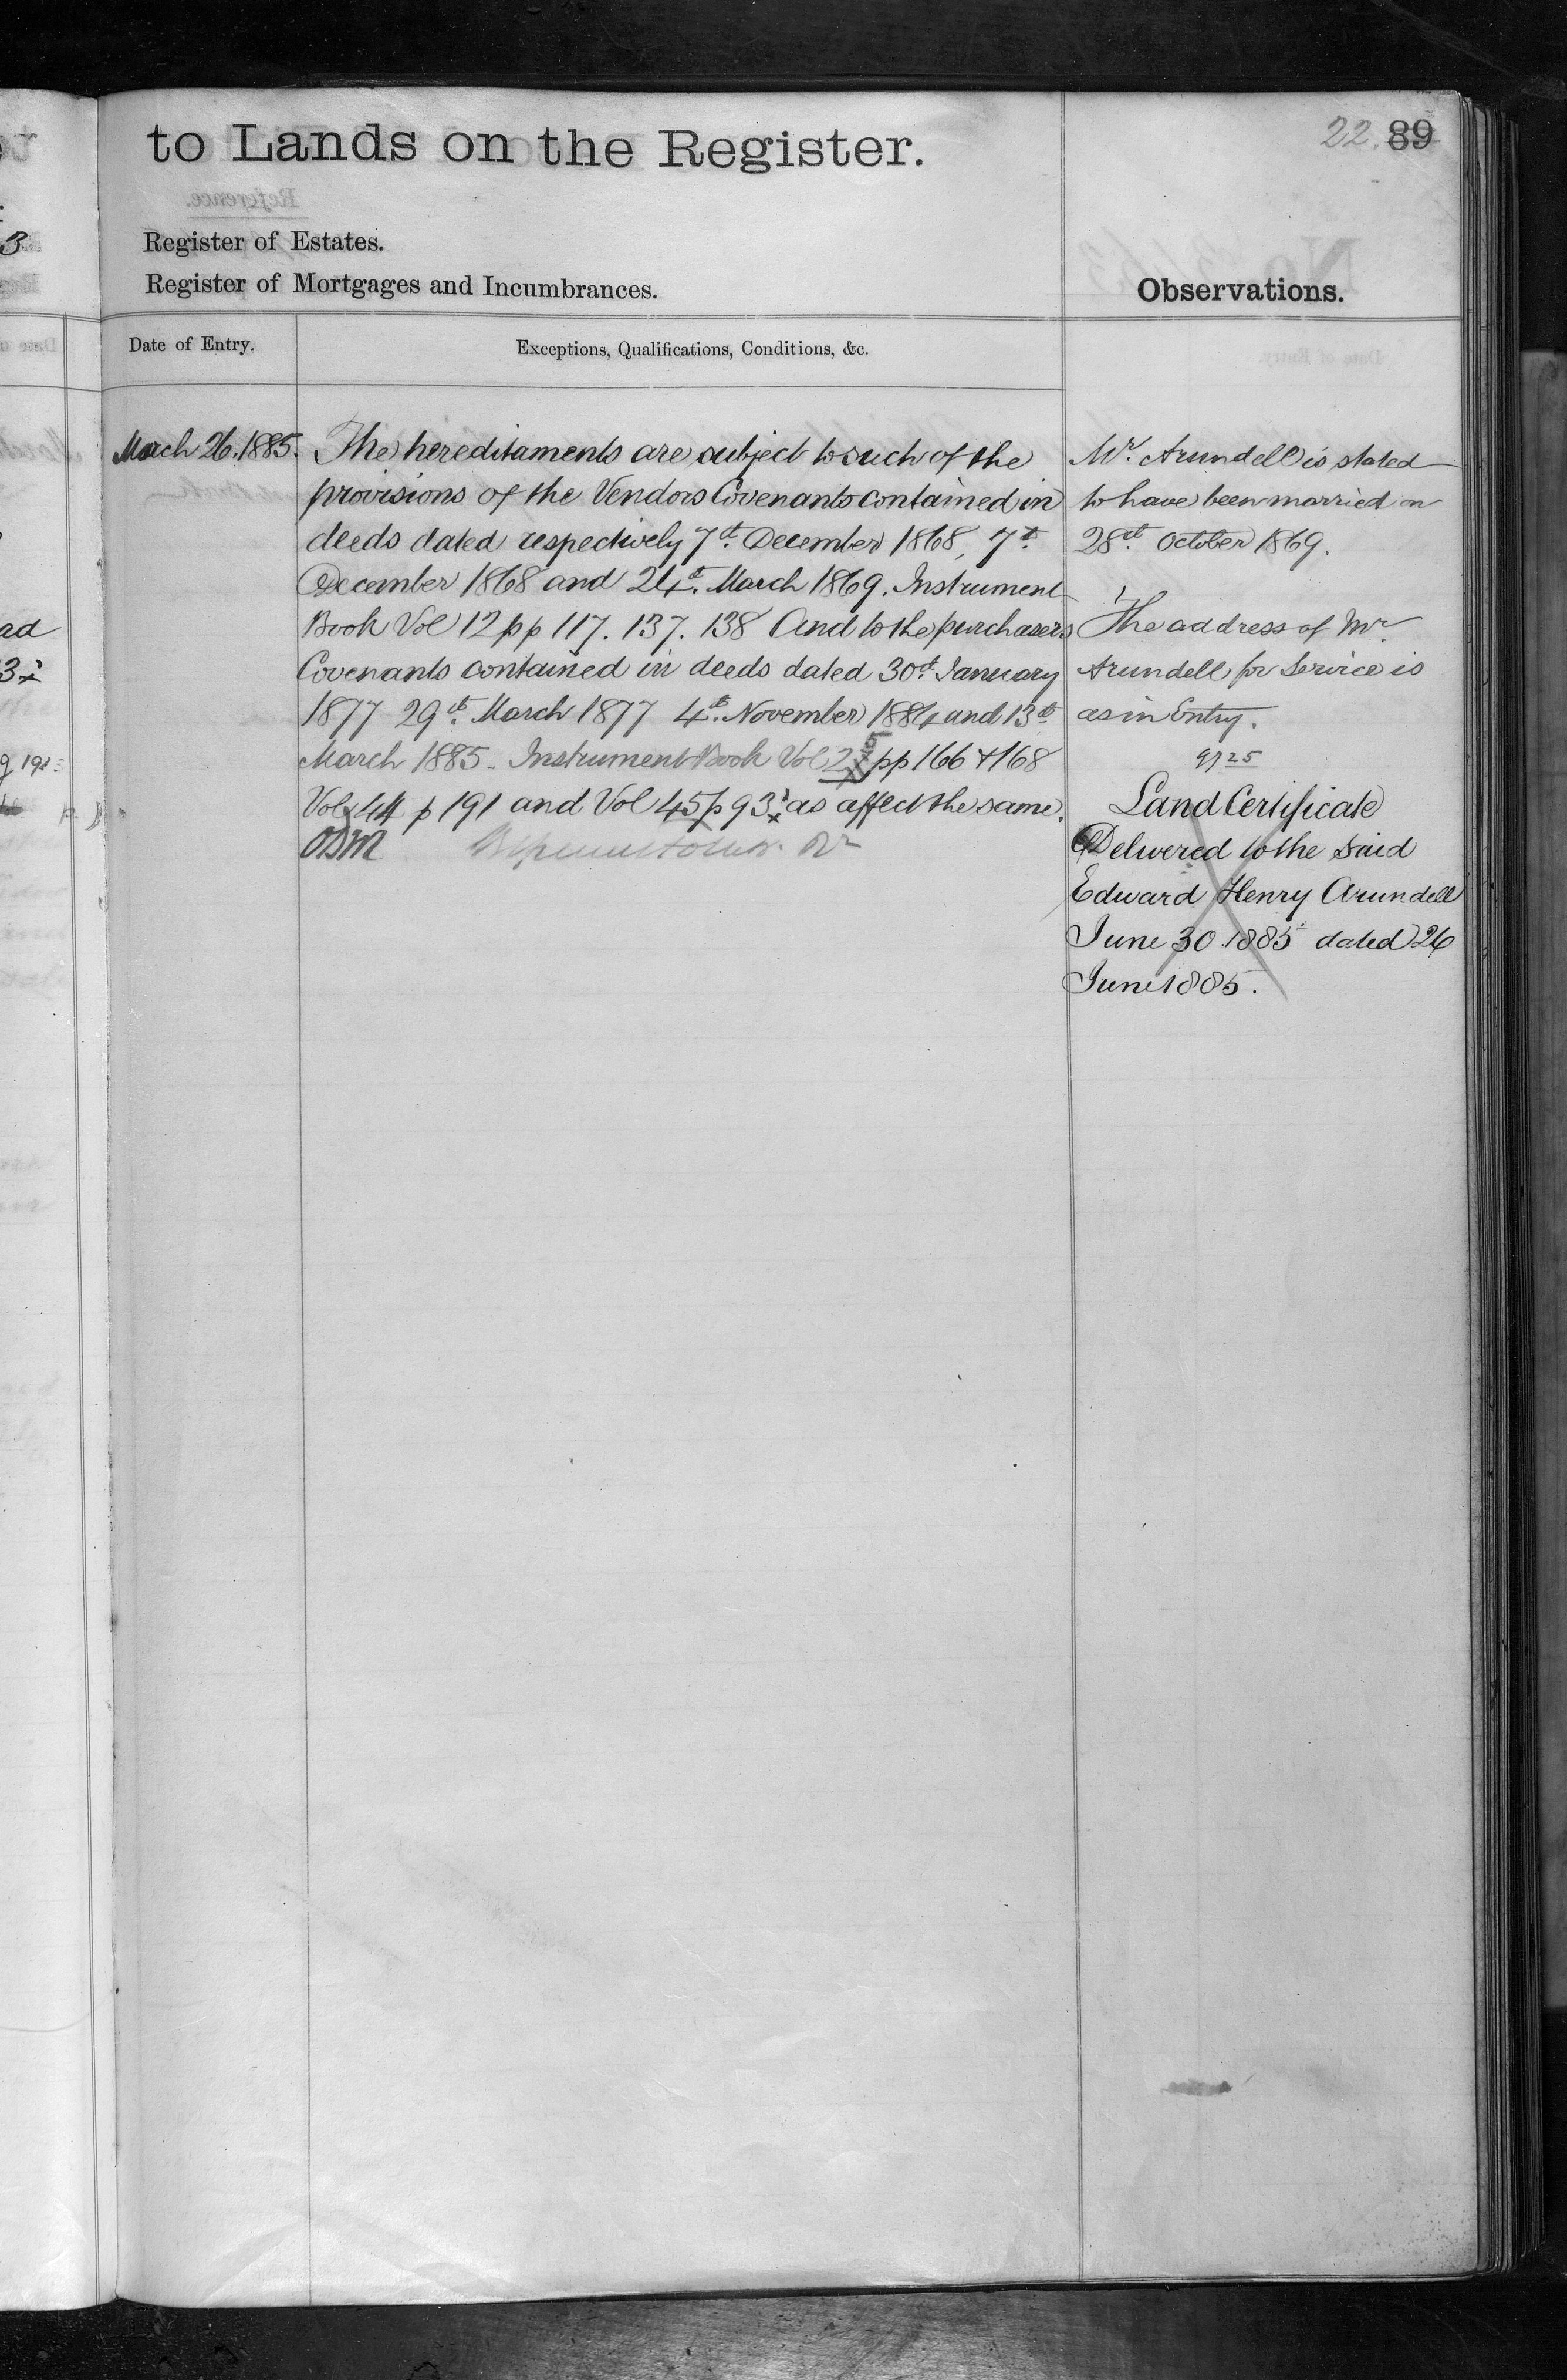 to Lands on the Register.
22. 89
Register of Estates.
Register of Mortgages and Incumbrances.
Observations.
Date of Entry.
Exceptions, Qualifications, Conditions, &c.
March 26. 1885.
The hereditaments are subject to such of the
provisions of the Vendors Covenants contained in
deeds dated respectively 7th. December 1868, 7th.
December 1868 and 24th. March 1869. Instrument
Book Vol 12 pp 117. 137. 138 And to the purchasers
Covenants contained in deeds dated 30th. January
1877 29th. March 1877 4th. November 1884 and 13th
March 1885 - Instrument Book Vol 25 pp 166 & 168
Vol 44 p 191 and Vol 45 p 93 as affect the same.
Mr. Arundell is stated
to have been married on
28th. October 1869.
The address of Mr.
Arundell for Service is
as in Entry.
25
Land Certificate
Delivered to the said
Edward Henry Arundell
June 30. 1885 dated 26
June 1885.